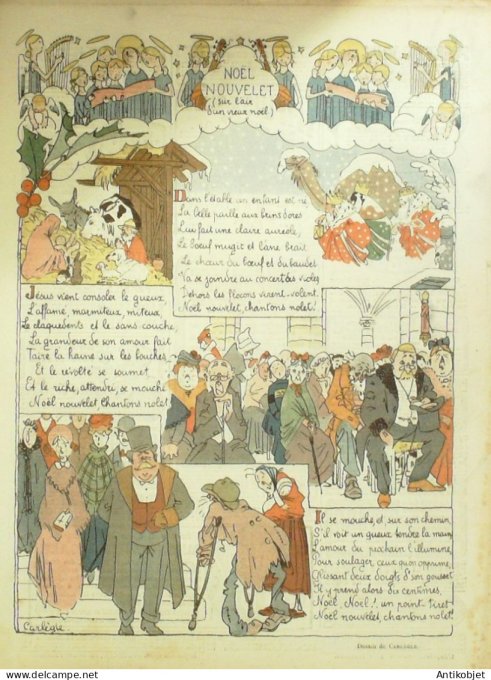 NOËL
NOUVELET
(sur l'air
d'un vieux noël)
Dans l'étable un enfant est né
La belle paille aux brins dorés
Lui fait une claire auréole,
Le bœuf mugit et l'âne brait
Le chœur du bœuf et du baudet
Va se joindre au concert des violes
Dehors les flocons virent, volent.
Noël nouvelet, chantons nolet!
Jésus vient consoler le gueux,
L'affamé, marmiteux, miteux,
Le claquedents et le sans couche,
La grandeur de son amour fait
Taire la haine sur les bouches,
Et le révolté se soumet
Et le riche, attendri, se mouche
Noël nouvelet chantons nolet
Il se mouche, et sur son chemin,
S'il voit un gueux tendre la main
L'amour du prochain l'illumine,
Pour soulager ceux qu'on opprime,
Glissant deux doigts d'son gousset
Il y prend alors dix centimes,
Noël, Noël! un point, tiret
Noël nouvelet, chantons nolet!
Carlègle
Dessin de CARLÈGLE.
www.antikobjet.com
© Antikobjet